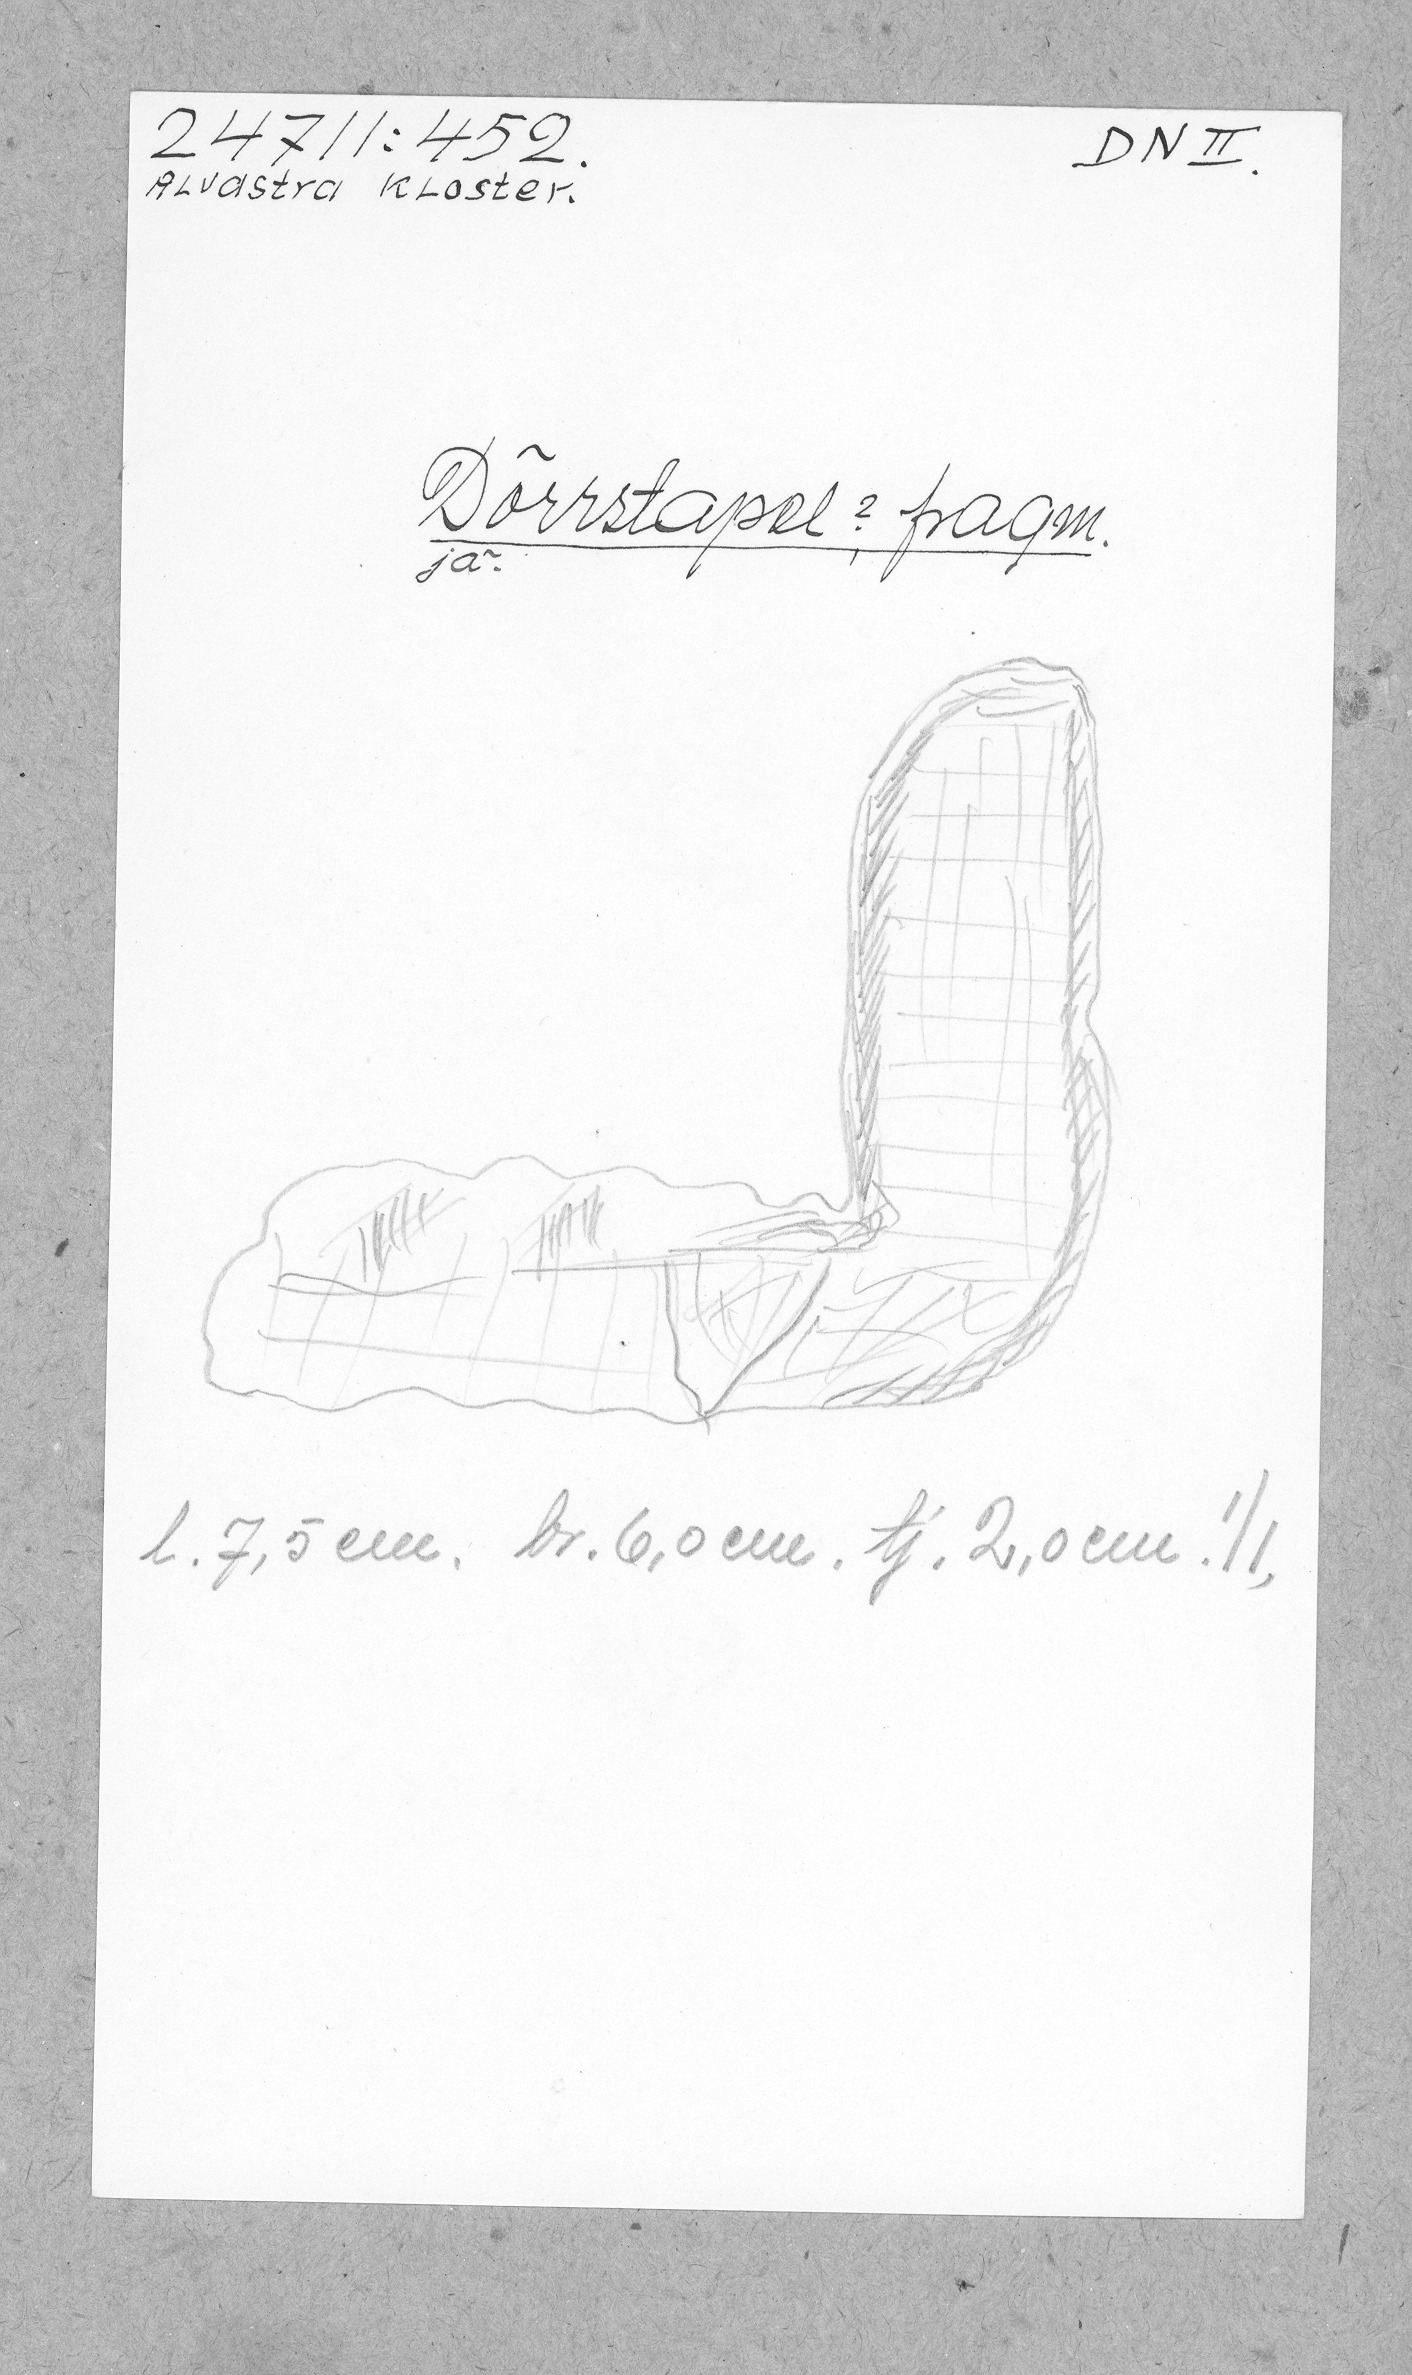 24711:452. DN II.
ALVastra KLoster.
Dörrstapel?, fragm.
jä.
l. 7,5 cm. br. 6,0 cm. tj. 2,0 cm. 1/1,